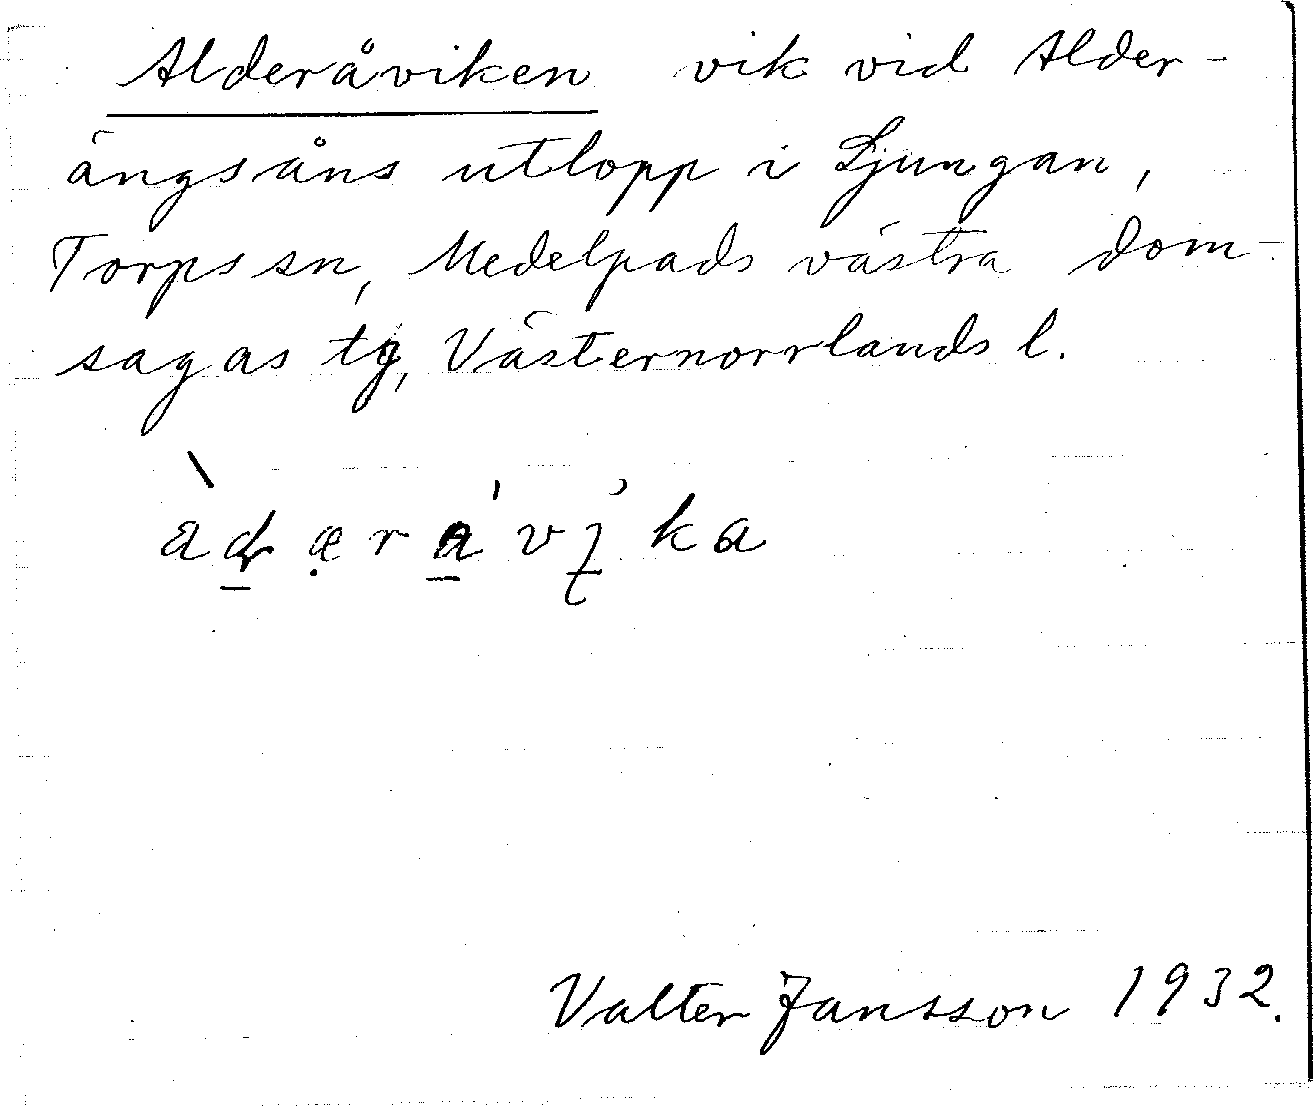 Alderåviken vik vid Alder-
ängsåns utlopp i Ljungan,
Torps sn, Medelpads västra dom-
sagas tg, Västernorrlands l.
Valter Jansson 1932.